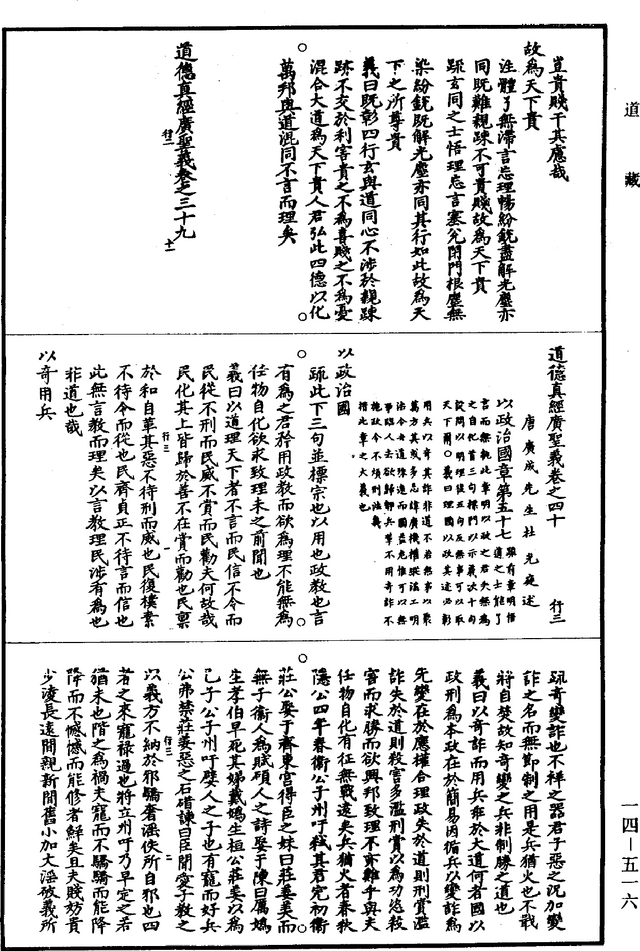 道藏
豈貴賤干其應哉
故為天下貴
注體了無滯言忘理暢紛銳盡解光塵亦
同既難親踈不可貴賤故為天下貴
踈玄同之士悟理忘言塞兌閉門根塵無
染紛銳既解光塵亦同其行如此故為天
下之所尊貴
義曰既彰四行玄與道同心不涉於親踈
跡不交於利害貴之不為喜賤之不為憂
混合大道為天下貴人君弘此四德以化
萬邦與道混同不言而理矣
道德真經廣聖義卷之三十九
行二
十二
道德真經廣聖義卷之四十
行三
唐廣成先生杜光庭述
以政治國章第五十七
以政治國
踈此下三句並標宗也以用也政教也言
有為之君矜用政教而欲為理不能無為
任物自化欲求致理未之前聞也
義曰以道理天下者不言而民信不令而
民從不刑而民威不賞而民勸夫何故哉
民化其上皆歸於善不在賞而勸也民稟
於和自革其惡不待刑而威也民復樸素
不待令而從也民齊貞正不待言而信也
此無言教而理矣以言教理民涉有為也
非道也哉
以奇用兵
踈奇變詐也不祥之器君子惡之況加變
詐之名而無節制之用是兵猶火也不戢
將自焚故知奇變之兵非制勝之道也
義曰以奇詐而用兵乖於大道何者國以
政刑為本政在於簡易因循兵以變詐為
先變在於應權合理政失於道則刑賞濫
詐失於道則殺害多濫刑賞以為功恣殺
害而求勝而欲興邦致理不亦難乎與夫
任物自化有征無戰遠矣兵猶火者春秋
隱公四年春衛公子州吁弒其君完初衛
莊公娶于齊東宮得臣之妹曰莊姜美而
無子衛人為賦碩人之詩娶于陳曰厲媯
生孝伯早死其娣戴媯生桓公莊姜以為
己子公子州吁嬖人之子也有寵而好兵
公弗禁莊姜惡之石碏諫曰臣聞愛子教之
以義方不納於邪驕奢淫佚所自邪也四
者之來寵祿過也將立州吁乃早定之若
猶未也階之為禍夫寵而不驕驕而能降
降而不憾憾而能修者鮮矣且夫賤妨貴
少淩長遠間親新間舊小加大淫破義所
一四—五一六